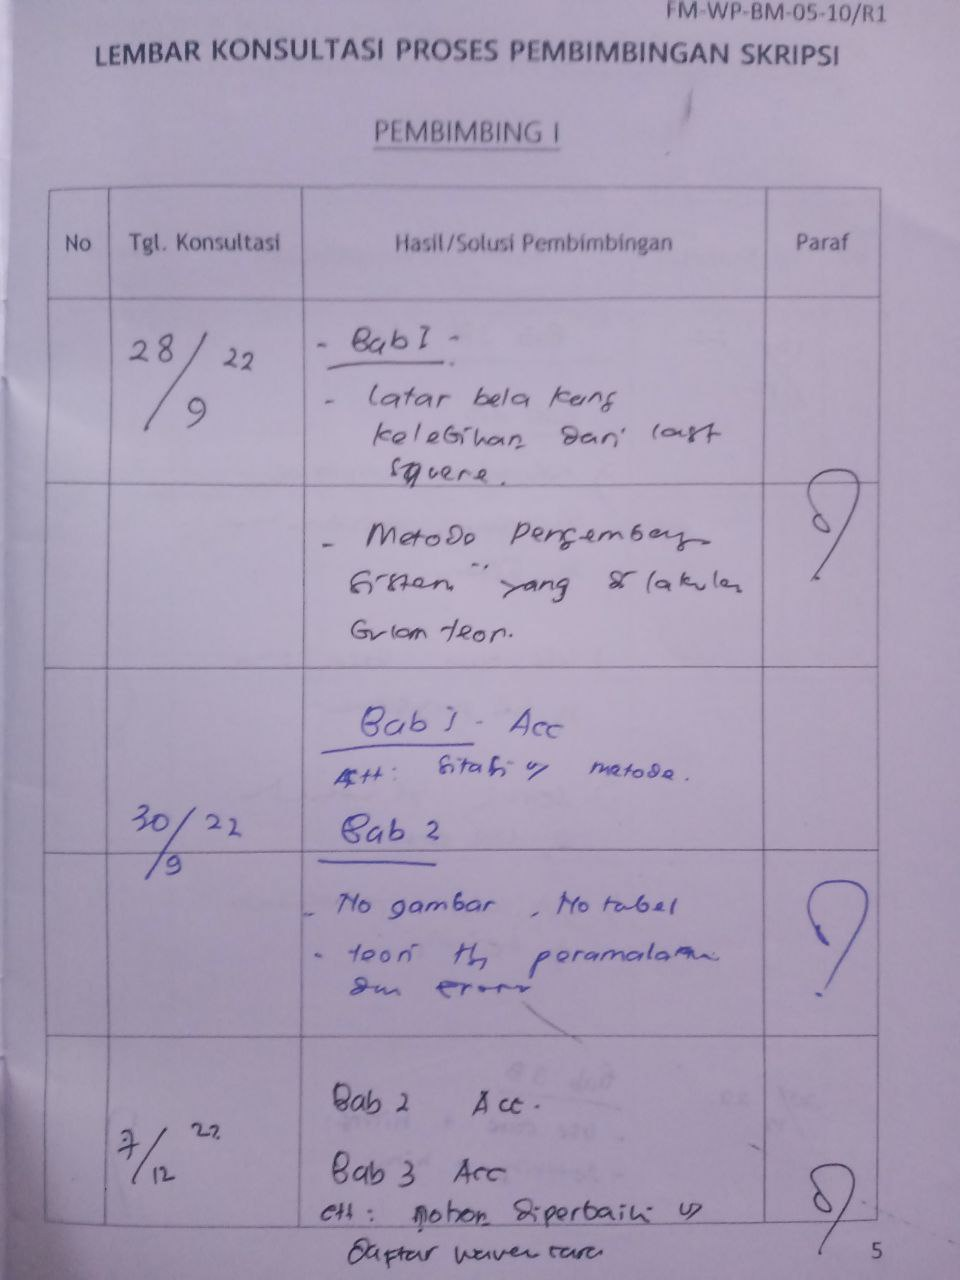 FM-WP-BM-05-10/R1
LEMBAR KONSULTASI PROSES PEMBIMBINGAN SKRIPSI
PEMBIMBING I
No Tgl. Konsultasi Hasil/Solusi Pembimbingan Paraf
28/9 22
- Bab I -
- Latar bela kang
kelebihan dari last
square.
- Metode Pengembang
Sistem yang di lakukan
teori.
Bab 1 - Acc
metode.
30/9 22
Bab 2
- No gambar . No tabel
- teori peramalan
dan error
7/12 22
Bab 2 Acc.
Bab 3 Acc
mohon diperbaiki
Daftar
5